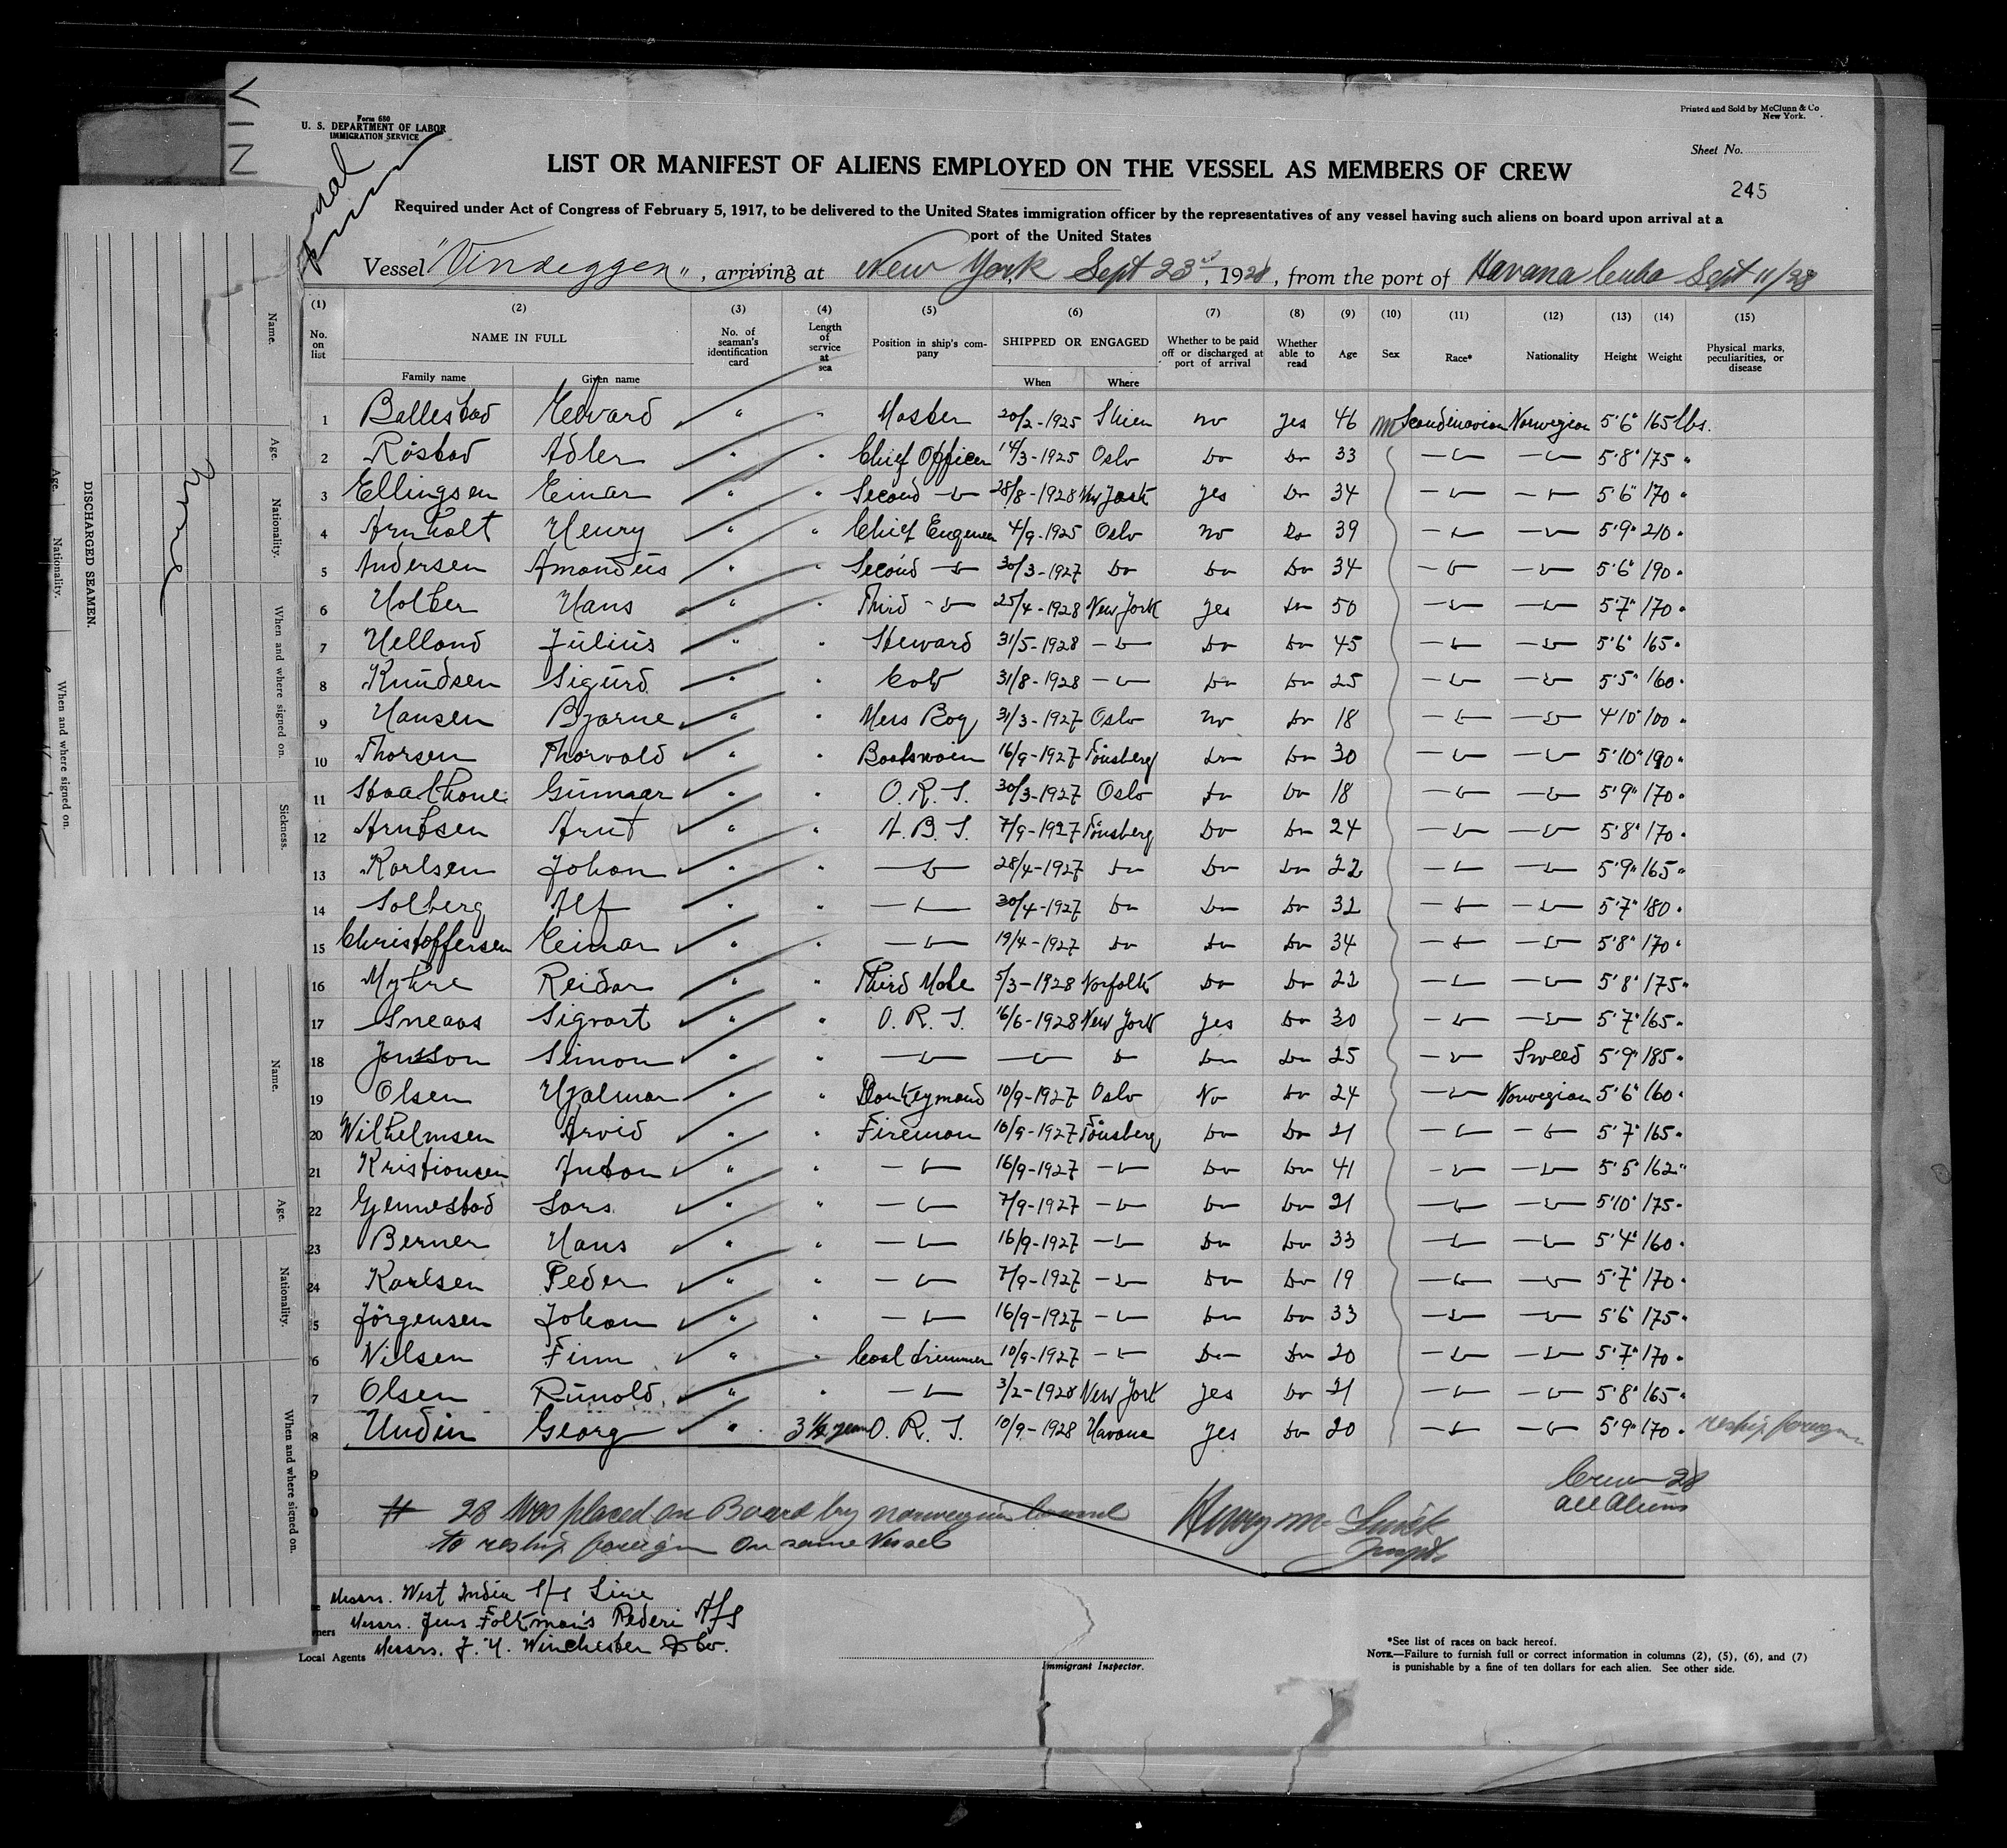 Form 680
U. S. DEPARTMENT OF LABOR
IMMIGRATION SERVICE
Printed and Sold by McClunn & Co
New York.
Sheet No.
245
LIST OR MANIFEST OF ALIENS EMPLOYED ON THE VESSEL AS MEMBERS OF CREW
Required under Act of Congress of February 5, 1917, to be delivered to the United States immigration officer by the representatives of any vessel having such aliens on board upon arrival at a
port of the United States
Vessel "Vindeggen", arriving at New York Sept 23rd, 1928, from the port of Havana Cuba Sept 11/28
(1) (2) (3) (4) (5) (6) (7) (8) (9) (10) (11) (12) (13) (14) (15)
No. on list NAME IN FULL No. of seaman's identification card Length of service at sea Position in ship's company SHIPPED OR ENGAGED Whether to be paid off or discharged at port of arrival Whether able to read Age Sex Race* Nationality Height Weight Physical marks, peculiarities, or disease
Family name Given name When Where
1 Ballestad Edward " " Master 20/2-1925 Skien no yes 46 m Scandinavian Norwegian 5'6" 165 lbs.
2 Röstad Adler " " Chief Officer 14/3-1925 Oslo Do Do 33 5'8" 175 "
3 Ellingsen Einar " " Second 28/8-1928 New York yes Do 34 5'6" 170 "
4 Arnholt Henry " " Chief Engineer 4/9-1925 Oslo no Do 39 5'9" 210 "
5 Andersen Amandus " " Second 30/3-1927 Do Do Do 34 5'6" 190 "
6 Holter Hans " " Third 25/4-1928 New York yes Do 50 5'7" 170 "
7 Helland Julius " " Steward 31/5-1928 Do Do 45 5'6" 165 "
8 Knudsen Sigurd " " Cook 31/8-1928 Do Do 25 5'5" 160 "
9 Hansen Bjarne " " Mess Boy 31/3-1927 Oslo no Do 18 4'10" 100 "
10 Thorsen Thorvald " " Boatswain 16/9-1927 Tönsberg Do Do 30 5'10" 190 "
11 Gunnar " " O. R. S. 30/3-1927 Oslo Do Do 18 5'9" 170 "
12 Arntsen Arnt " " A. B. S. 7/9-1927 Tönsberg Do Do 24 5'8" 170 "
13 Karlsen Johan " " 28/4-1927 Do Do Do 22 5'9" 165 "
14 Solberg Alf " " 30/4-1927 Do Do Do 32 5'7" 180 "
15 Christoffersen Einar " " 19/4-1927 Do Do Do 34 5'8" 170 "
16 Myhre Reidar " " Third Mate 5/3-1928 Norfolk Do Do 22 5'8" 175 "
17 Sneaas Sigvart " " O. R. S. 16/6-1928 New York yes Do 30 5'7" 165 "
18 Jonsson Simon " " Do Do Do 25 Sweed 5'9" 185 "
19 Olsen Hjalmar " " Donkeymand 10/9-1927 Oslo No Do 24 Norwegian 5'6" 160 "
20 Wilhelmsen Arvid " " Fireman 10/9-1927 Tönsberg Do Do 21 5'7" 165 "
21 Kristiansen Anton " " 16/9-1927 Do Do 41 5'5" 162 "
22 Gjennestad Lars " " 7/9-1927 Do Do 21 5'10" 175 "
23 Berner Hans " " 16/9-1927 Do Do 33 5'4" 160 "
24 Karlsen Peder " " 7/9-1927 Do Do 19 5'7" 170 "
5 Jörgensen Johan " 16/9-1927 Do Do 33 5'6" 175 "
6 Nilsen Finn " " Coal trimmer 10/9-1927 Do Do 20 5'7" 170 "
7 Olsen Runold " " 3/2-1928 New York yes Do 21 5'8" 165 "
8 Undin Georg " 3 1/2 year O. R. S. 10/9-1928 Havana yes Do 20 5'9" 170 " reship foreign
9
0
Crew 28
all aliens
# 28 Was placed on Board by norwegian Consul
to reship foreign on same Vessel
Henry
Inspt.
Messrs. West India S/S Line
ners Messrs. Jens Folkman's Rederi A/S
Local Agents Messrs. J. H. Winchester & Co.
Immigrant Inspector.
*See list of races on back hereof.
NOTE.—Failure to furnish full or correct information in columns (2), (5), (6), and (7)
is punishable by a fine of ten dollars for each alien. See other side.
DISCHARGED SEAMEN.
Name.
Age.
Nationality.
When and where signed on.
Sickness.
Name.
Age.
Nationality.
When and where signed on.
Age.
Nationality.
When and where signed on.